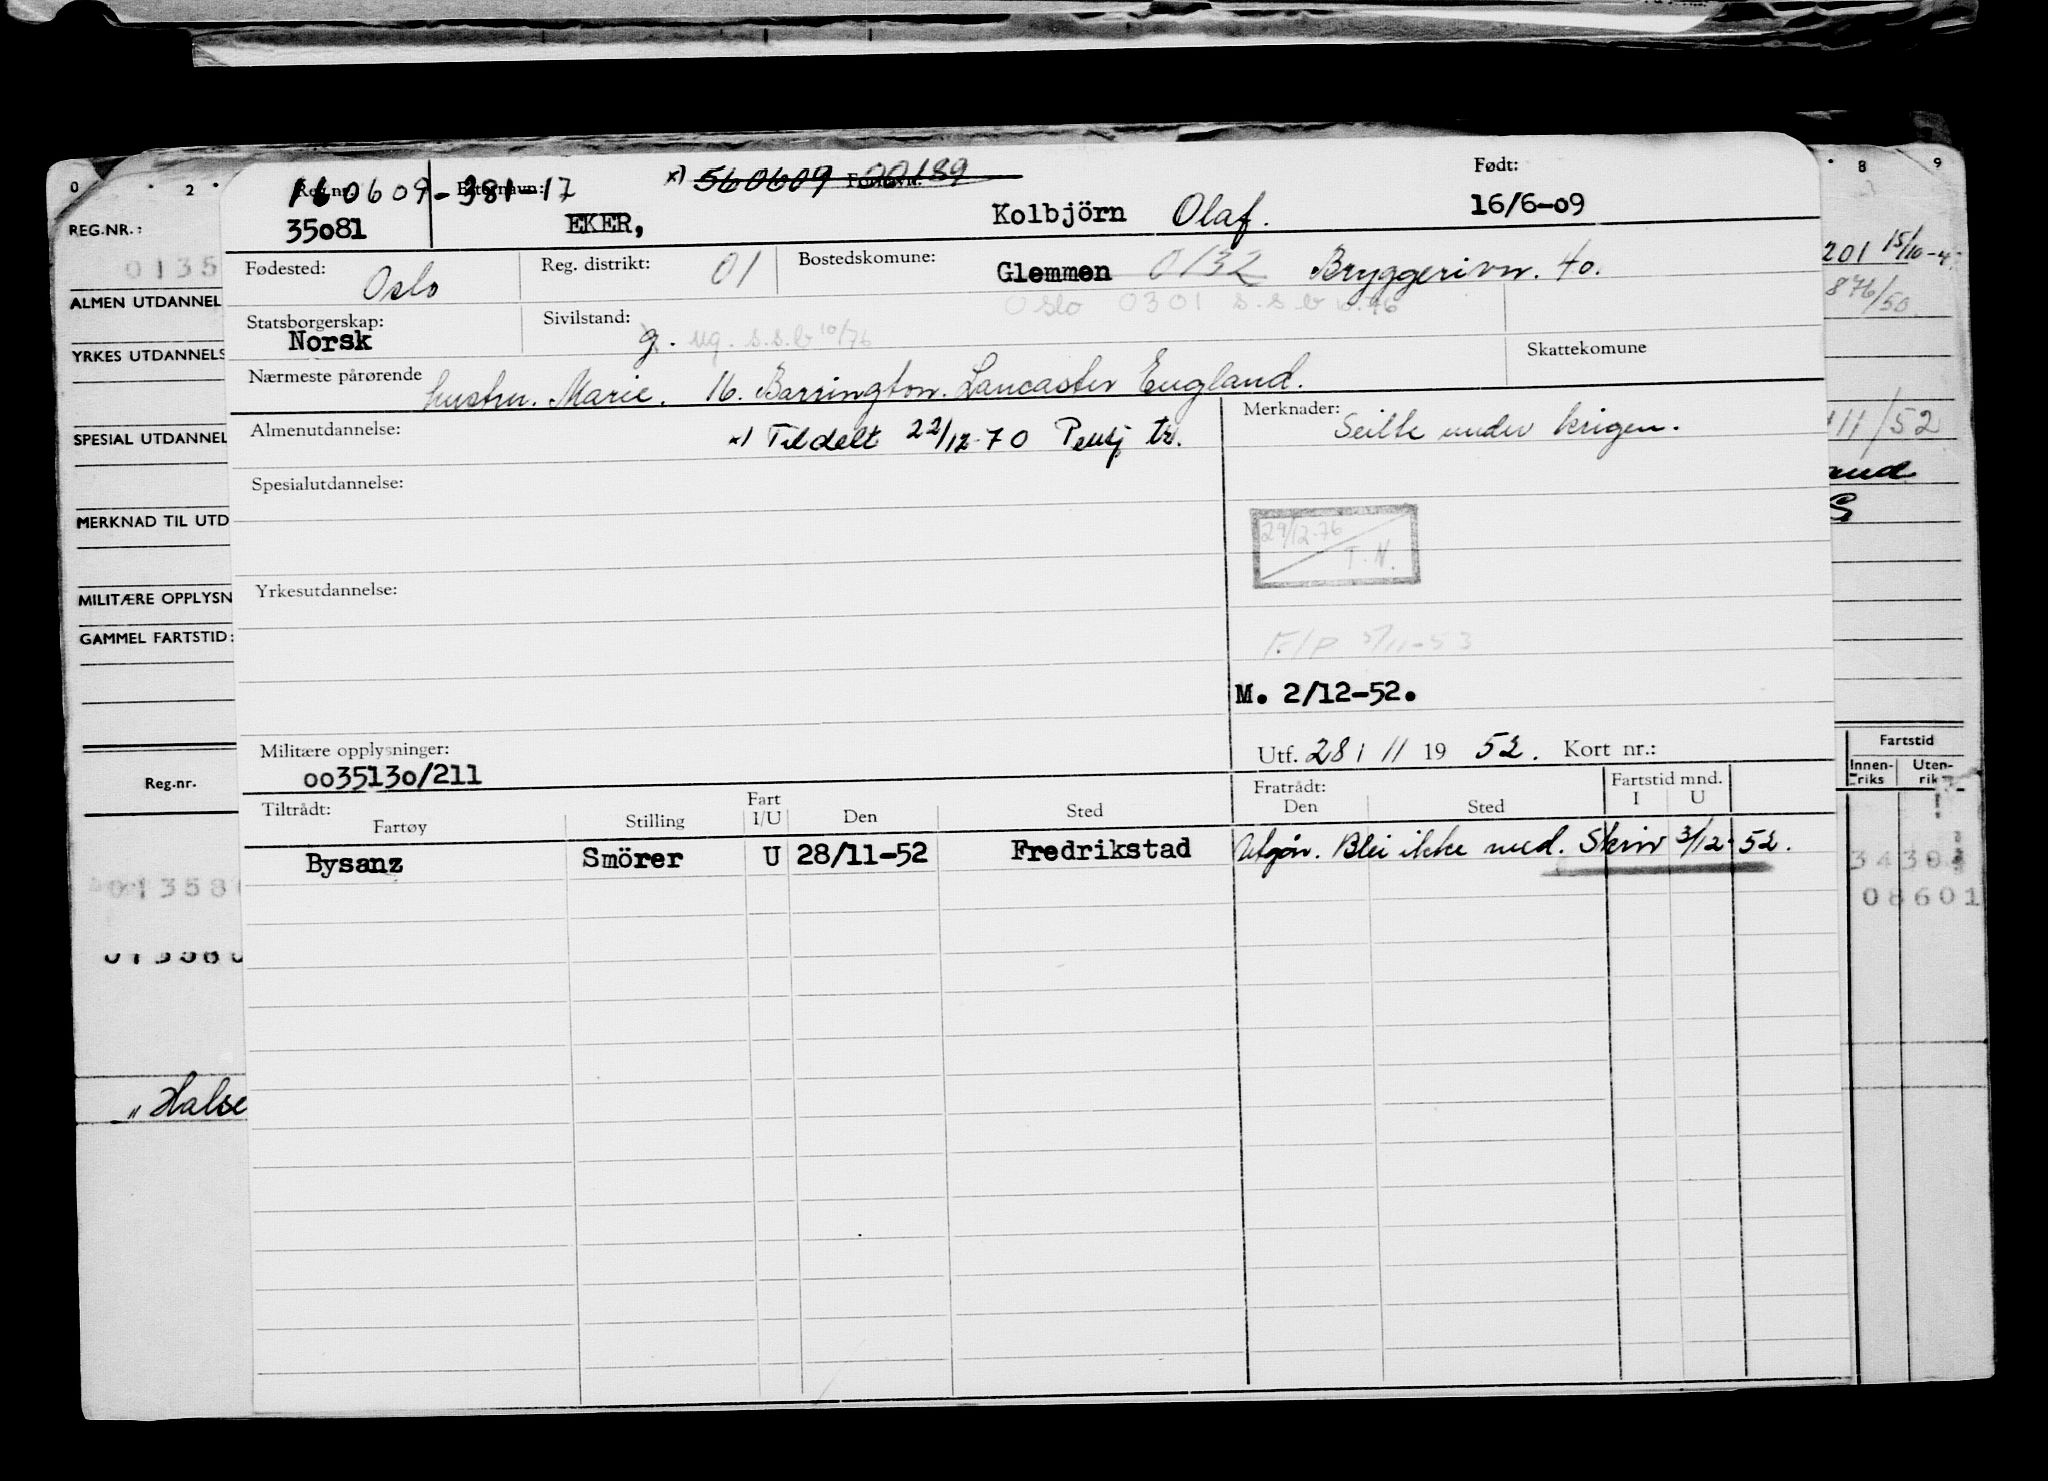 0 · 2 · · 8 9
160609-381-17 x) 560609 00189
Reg.nr. Etternavn: Fornavn: Født:
35081 EKER, Kolbjörn Olaf. 16/6-09
REG.NR.:
0135
Fødested: Oslo Reg. distrikt: 01 Bostedskomune: Glemmen 0132 Bryggerivn. 40.
201 15/10-4
Oslo 0301 s.s.b 10.76
876/50
ALMEN UTDANNEL
Statsborgerskap: Norsk Sivilstand: g. ug. s.s.b 10/76
YRKES UTDANNELS
Skattekomune
Nærmeste pårørende hustru. Marie. 16. Barrington. Lancaster England.
Almenutdannelse: x) Tildelt 22/12-70 Pensj tr.
Merknader: Seilte under krigen.
SPESIAL UTDANNEL
11/52
Spesialutdannelse:
and
S
MERKNAD TIL UTD
29/12-76
T.N.
Yrkesutdannelse:
MILITÆRE OPPLYSN
GAMMEL FARTSTID:
F/P 5/11-53
M. 2/12-52.
Militære opplysninger:
0035130/211
Utf. 28 / 11 19 52. Kort nr.:
Reg.nr.
Fartstid
Innen-riks Uten-rik
Tiltrådt: Fartøy Stilling Fart I/U Den Sted Fratrådt: Den Sted Fartstid mnd. I U
Bysanz Smörer U 28/11-52 Fredrikstad Utgår. Blei ikke med. Skriv 3/12-52.
01358
34304
08601
" Halse